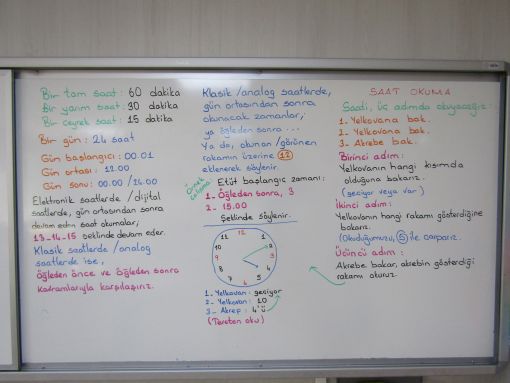 Bir tam saat: 60 dakika
Bir yarım saat: 30 dakika
Bir çeyrek saat: 15 dakika
Bir gün: 24 saat
Gün başlangıcı: 00.01
Gün ortası: 12.00
Gün sonu: 00.00 /24.00
Elektronik saatlerde /dijital
saatlerde, gün ortasından sonra
devam eden saat okumalar,
13-14-15 şeklinde devam eder.
Klasik saatlerde /analog
saatlerde ise,
Öğleden önce ve öğleden sonra
kavramlarıyla karşılaşırız.
Klasik/analog saatlerde,
gün ortasından sonra
okunacak zamanlar;
ya öğleden sonra ...
Ya da, okunan/görünen
rakamın üzerine 12
eklenerek söylenir
Örnek
Çalışma
Etüt başlangıç zamanı:
1- Öğleden sonra, 3
2- 15.00
Şeklinde söylenir.
12
11 1
10 2
9 3
8 4
7 5
6
1- Yelkovan: geçiyor
2- Yelkovan: 10
3- Akrep: 4'ü
(Tersten oku)
SAAT OKUMA
Saati, üç adımda okuyacağız:
1. Yelkovana bak.
2. Yelkovana bak.
3. Akrebe bak.
Birinci adım:
Yelkovanın hangi kısımda
olduğuna bakarız.
(geçiyor veya var)
İkinci adım:
Yelkovanın hangi rakamı gösterdiğine
bakarız.
(Okuduğumuzu, 5 ile çarparız.
Üçüncü adım:
Akrebe bakar, akrebin gösterdiği
rakamı okuruz.